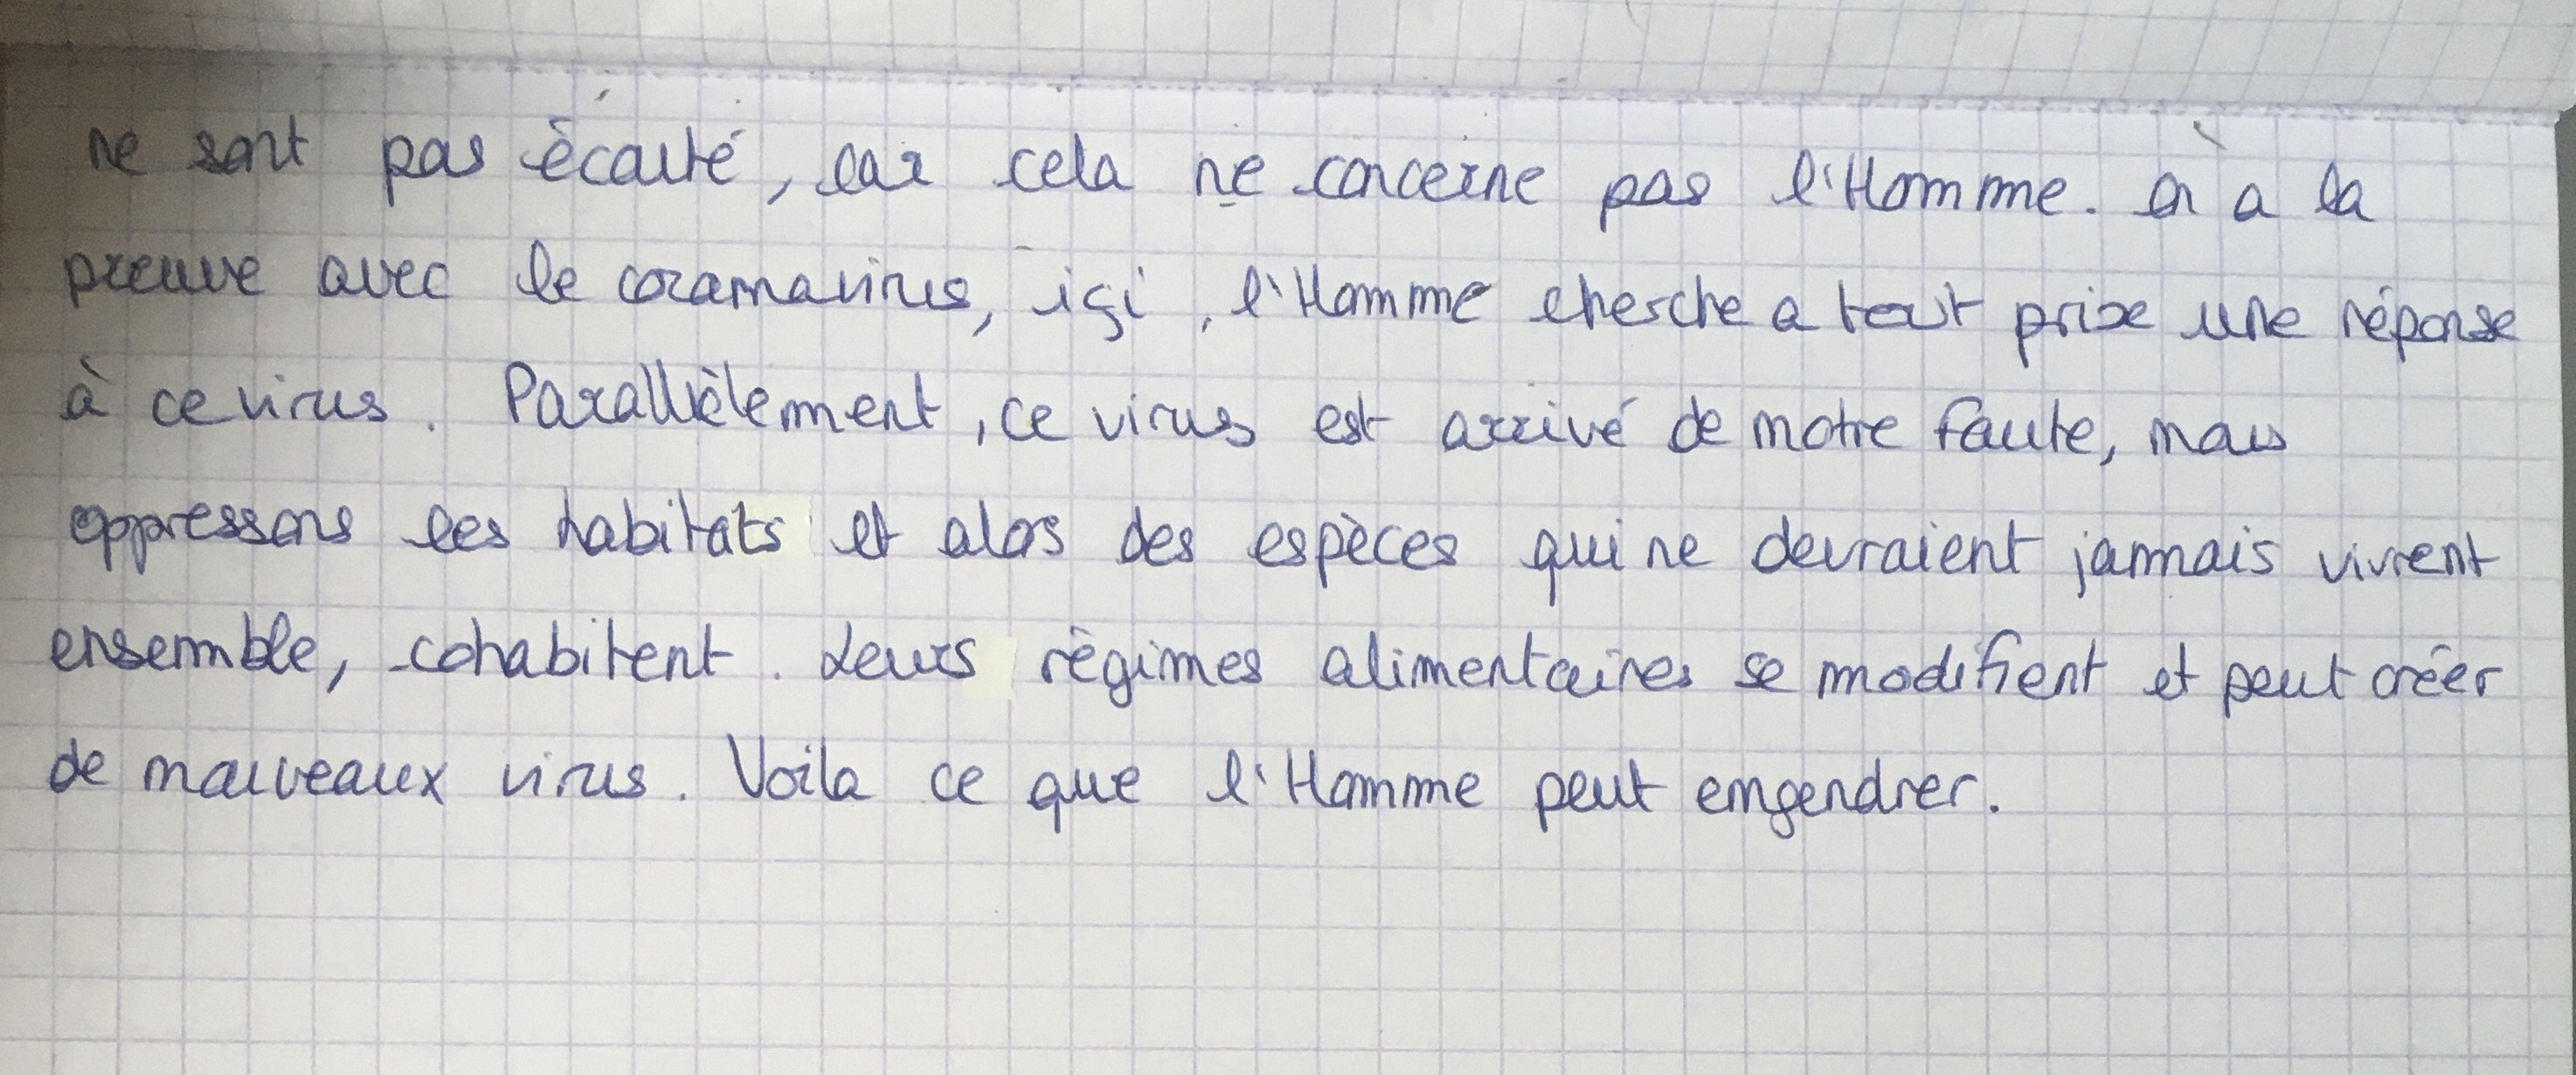 ne sont pas écouté, car cela ne concerne pas l'Homme. On a la
preuve avec le coronavirus, içi, l'Homme cherche a tout prixe une réponse
à ce virus. Parallèlement, ce virus est arrivé de notre faute, nous
oppressons les habitats et alors des espèces qui ne devraient jamais vivrent
ensemble, cohabitent. Leurs régimes alimentaires se modifient et peut créer
de nouveaux virus. Voila ce que l'Homme peut engendrer.